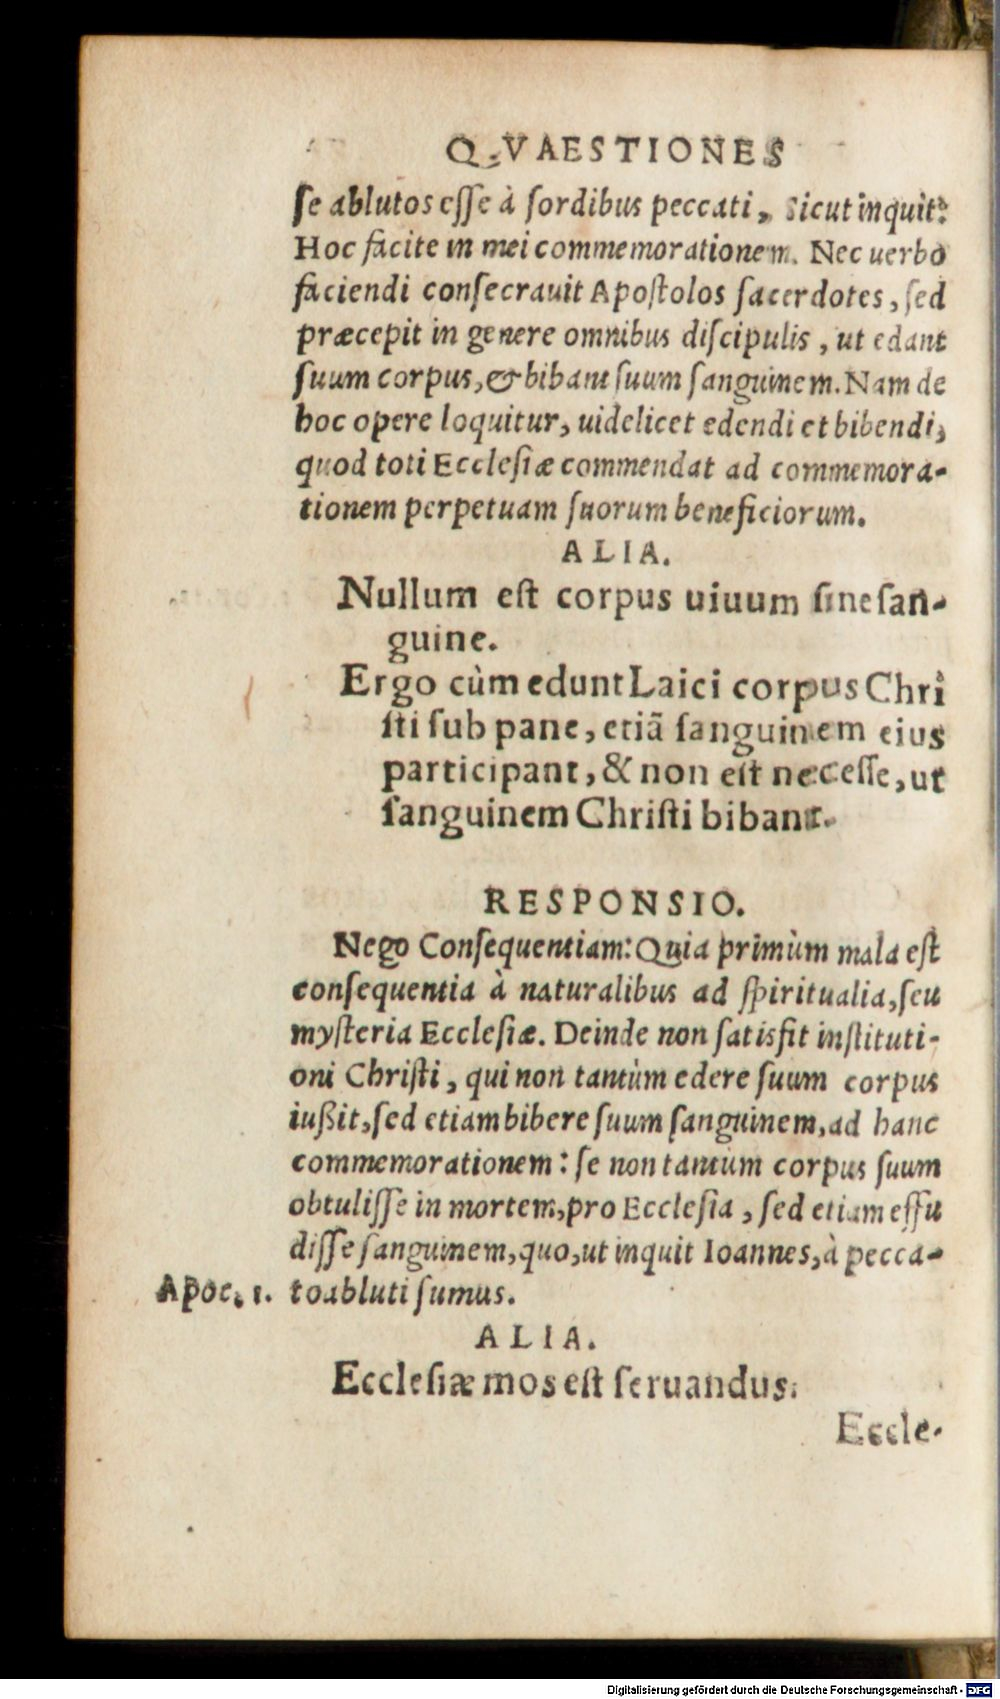 QVAESTIONES
se ablutos esse à sordibus peccati, Sicut inquit:
Hoc facite in mei commemorationem. Nec uerbo
faciendi consecrauit Apostolos sacerdotes, sed
præcepit in genere omnibus discipulis, ut edant
suum corpus, & bibant suum sanguinem. Nam de
hoc opere loquitur, uidelicet edendi et bibendi,
quod toti Ecclesiæ commendat ad commemora-
tionem perpetuam suorum beneficiorum.
ALIA.
Nullum est corpus uiuum sine san-
guine.
Ergo cùm edunt Laici corpus Chri
sti sub pane, etiã sanguinem eius
participant, & non est necesse, ut
sanguinem Christi bibant.
RESPONSIO.
Nego Consequentiam: Quia primùm mala est
consequentia à naturalibus ad spiritualia, seu
mysteria Ecclesiæ. Deinde non satisfit instituti-
oni Christi, qui non tantùm edere suum corpus
iußit, sed etiam bibere suum sanguinem, ad hanc
commemorationem: se non tantùm corpus suum
obtulisse in mortem, pro Ecclesia, sed etiam effu
disse sanguinem, quo, ut inquit Ioannes, à pecca-
Apoc. 1. to abluti sumus.
ALIA.
Ecclesiæ mos est seruandus.
Eccle-
Digitalisierung gefördert durch die Deutsche Forschungsgemeinschaft - DFG